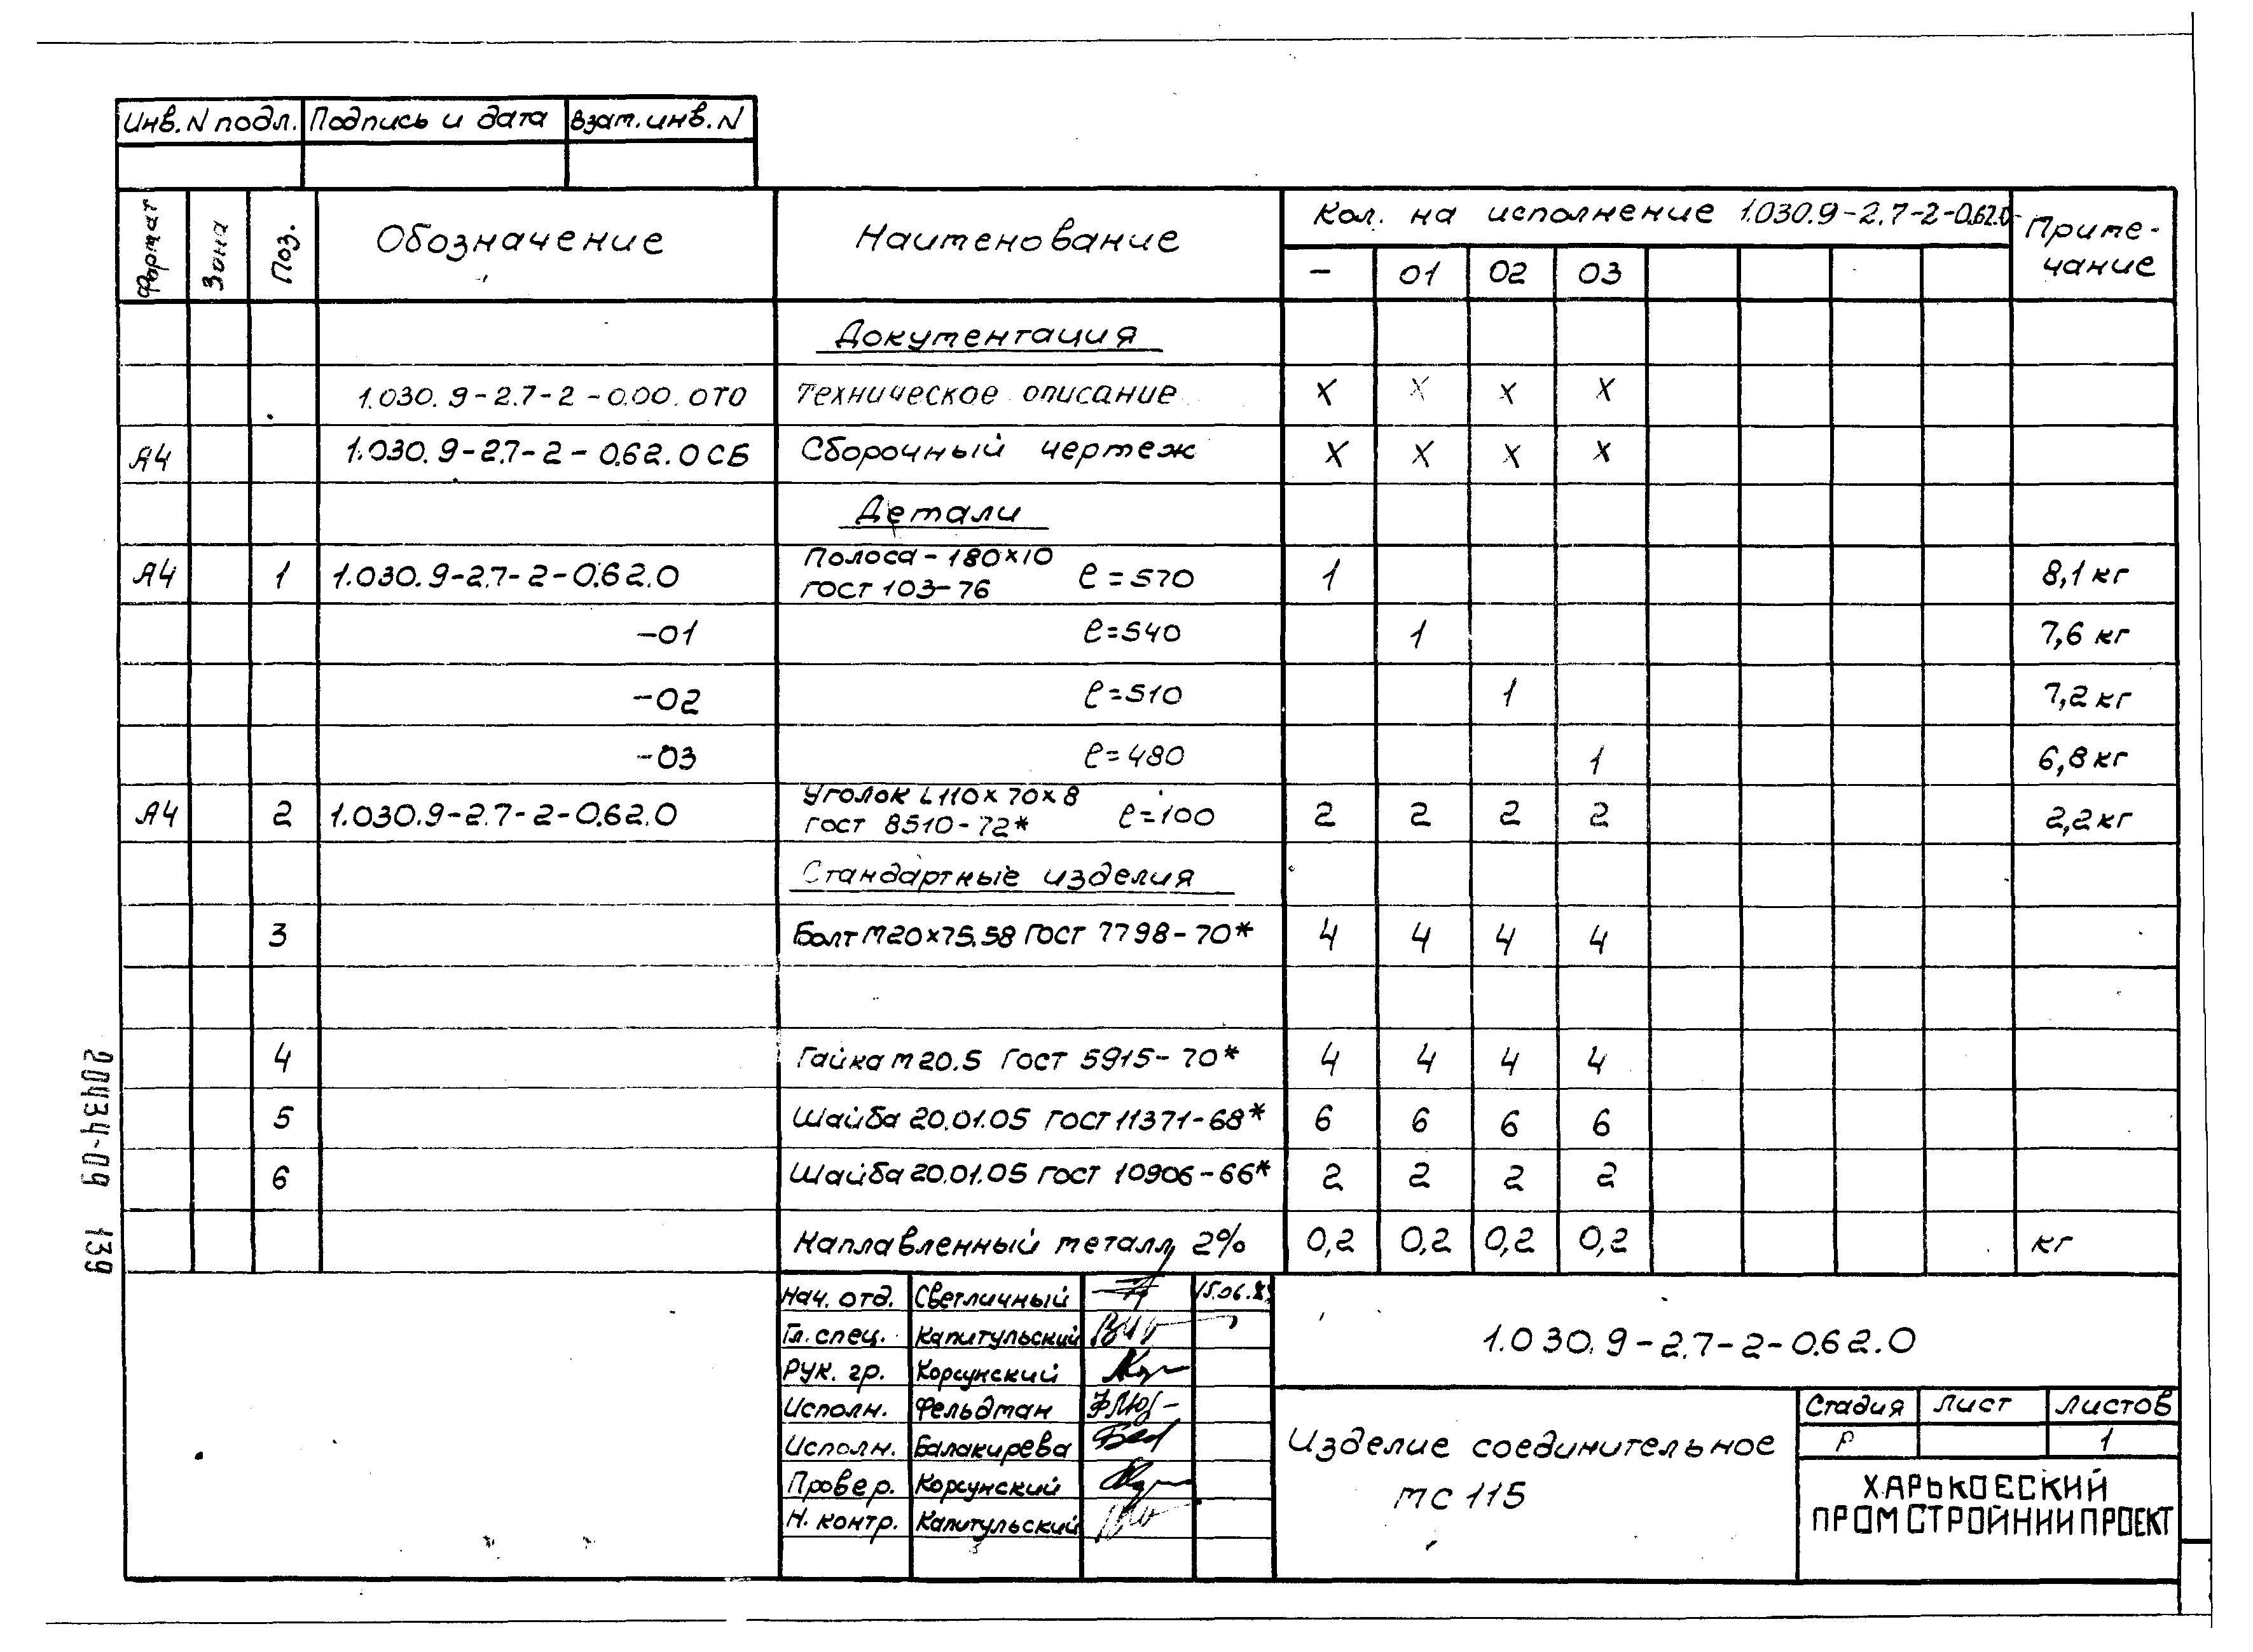 Инв. N подл. Подпись и дата Взам. инв. N
Формат Зона Поз. Обозначение Наименование Кол. на исполнение 1.030.9-2.7-2-0.62.0- Приме-
чание
– 01 02 03
Документация
1.030.9-2.7-2-0.00.0ТО Техническое описание X X X X
А4 1.030.9-2.7-2-0.62.0 СБ Сборочный чертеж X X X X
Детали
А4 1 1.030.9-2.7-2-0.62.0 Полоса-180×10 ГОСТ 103-76 ℓ=570 1 8,1 кг
-01 ℓ=540 1 7,6 кг
-02 ℓ=510 1 7,2 кг
-03 ℓ=480 1 6,8 кг
А4 2 1.030.9-2.7-2-0.62.0 Уголок L110×70×8 ГОСТ 8510-72* ℓ=100 2 2 2 2 2,2 кг
Стандартные изделия
3 Болт М20×75.58 ГОСТ 7798-70* 4 4 4 4
4 Гайка М20.5 ГОСТ 5915-70* 4 4 4 4
5 Шайба 20.01.05 ГОСТ 11371-68* 6 6 6 6
6 Шайба 20.01.05 ГОСТ 10906-66* 2 2 2 2
Наплавленный металл 2% 0,2 0,2 0,2 0,2 кг
20434-09 139
Нач. отд. Светличный 15.06.
Гл. спец. Капитульский
Рук. гр. Корсунский
Исполн. Фельдман
Исполн. Балакирева
Провер. Корсунский
Н. контр. Капитульский
1.030.9-2.7-2-0.62.0
Изделие соединительное
МС 115
Стадия Лист Листов
Р 1
ХАРЬКОВСКИЙ
ПРОМСТРОЙНИИПРОЕКТ